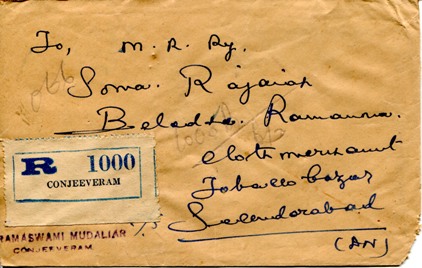 To, M. R. Ry.
Soma. Rajaiah
Beladde Ramanna.
cloth merchant
Tobacco bazar
Secunderabad
(AN)
R 1000
CONJEEVERAM
RAMASWAMI MUDALIAR
CONJEEVERAM